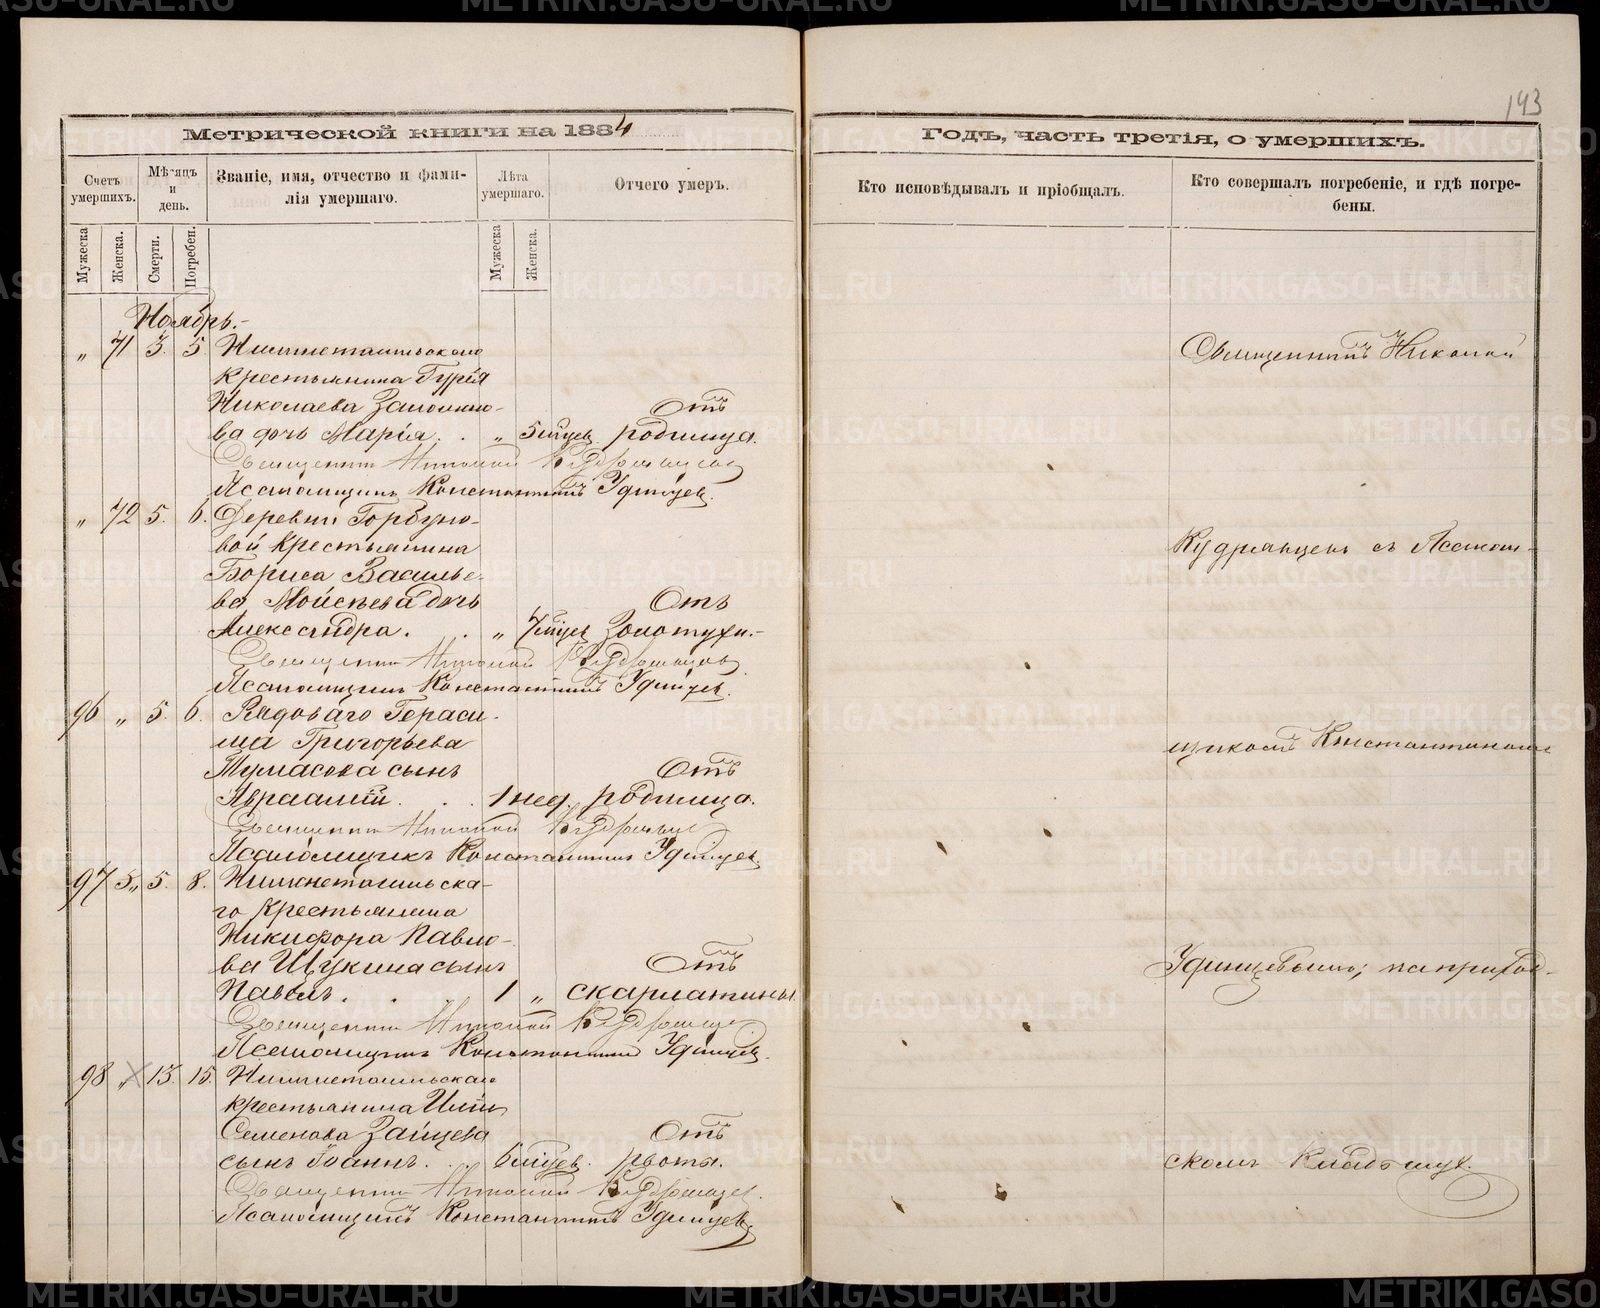 143
Метрической книги на 1884
Годъ, часть третія, о умершихъ.
Счетъ умершихъ.
Мѣсяцъ и день.
Званіе, имя, отчество и фами-
лія умершаго.
Лѣта умершаго.
Отчего умеръ.
Кто исповѣдывалъ и пріобщалъ.
Кто совершалъ погребеніе, и гдѣ погре-
бены.
Мужеска
Женска.
Смерти.
Погребен.
Мужеска
Женска.
Ноябрь.
„ 71 3. 5. Нижнетагильскаго
крестьянина Гурія
Николаева
Отъ
ва дочь Марія. . „ 5 мѣсяц. родимца.
Священникъ Николай Кудрявцевъ
Псаломщикъ Константинъ Удинцев.
„ 72 5. 6. Деревни Горбуно-
вой крестьянина
Бориса Василье-
ва Моисѣева дочь Отъ
Александра. . „ 7 мѣсяц Золотухи.
Священникъ Николай Кудрявцевъ
Псаломщикъ Константинъ Удинцев.
96 „ 5. 6. Рядоваго Гераси-
ма Григорьева
Тумасова сынъ Отъ
Авраамій. . . 1 нед. родимца.
Священникъ Николай Кудрявцев
Псаломщикъ Константинъ Удинцев
97 5. 8. Нижнетагильска-
го крестьянина
Никифора Павло-
ва Щукина сынъ Отъ
Павелъ. . . 1 „ скарлатины.
Священникъ Николай Кудрявцев
Псаломщикъ Константинъ Удинцев.
98 „ 13. 15. Нижнетагильскаго
крестьянина Иліи
Семенова Зайцева Отъ
сынъ Іоаннъ. . 6 мѣсяцев. рвоты.
Священникъ Николай Кудрявцев.
Псаломщикъ Константинъ Удинцев
Священникъ Николай
Кудрявцевъ съ Псалом-
щикомъ Константиномъ
Удинцевымъ; на приход-
скомъ кладбищѣ.
METRIKI.GASO-URAL.RU